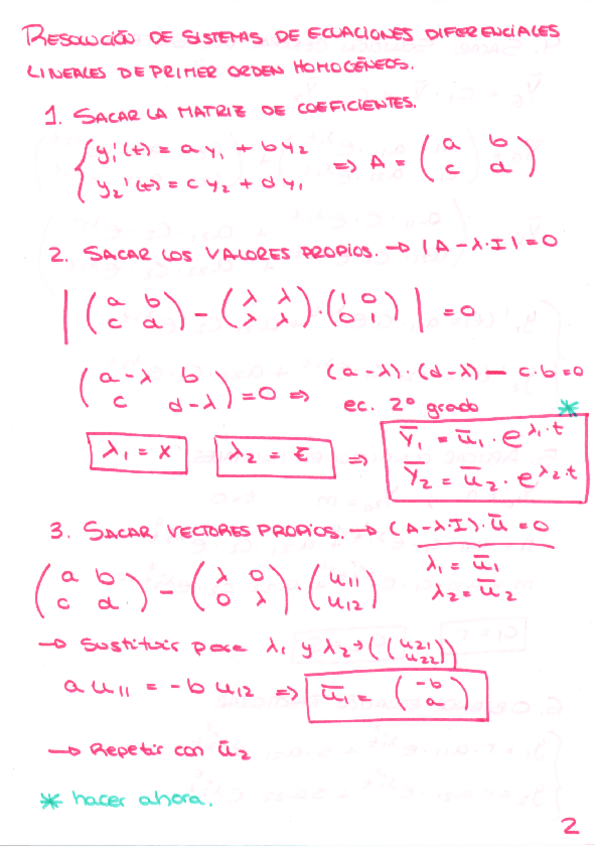 RESOLUCIÓN DE SISTEMAS DE ECUACIONES DIFERENCIALES
LINEALES DE PRIMER ORDEN HOMOGÉNEOS.
1. SACAR LA MATRIZ DE COEFICIENTES.
{ y₁'(t) = a y₁ + b y₂
y₂'(t) = c y₂ + d y₁ => A = ( a b
c d )
2. SACAR LOS VALORES PROPIOS. → |A - λ·I| = 0
| ( a b
c d ) - ( λ λ
λ λ ) · ( 1 0
0 1 ) | = 0
( a-λ b
c d-λ ) = 0 => (a-λ)·(d-λ) — c·b = 0
ec. 2º grado *
λ₁ = x λ₂ = z => Y̅₁ = u̅₁ · e^λ₁·t
Y̅₂ = u̅₂ · e^λ₂·t
3. SACAR VECTORES PROPIOS. → (A-λ·I)·u̅ = 0
λ₁ = u̅₁
λ₂ = u̅₂
( a b
c d ) - ( λ 0
0 λ ) · ( u₁₁
u₁₂ )
→ Sustituir para λ₁ y λ₂ → ( ( u₂₁
u₂₂ ) )
a u₁₁ = -b u₁₂ => u̅₁ = ( -b
a )
→ Repetir con u̅₂
* hacer ahora.
2